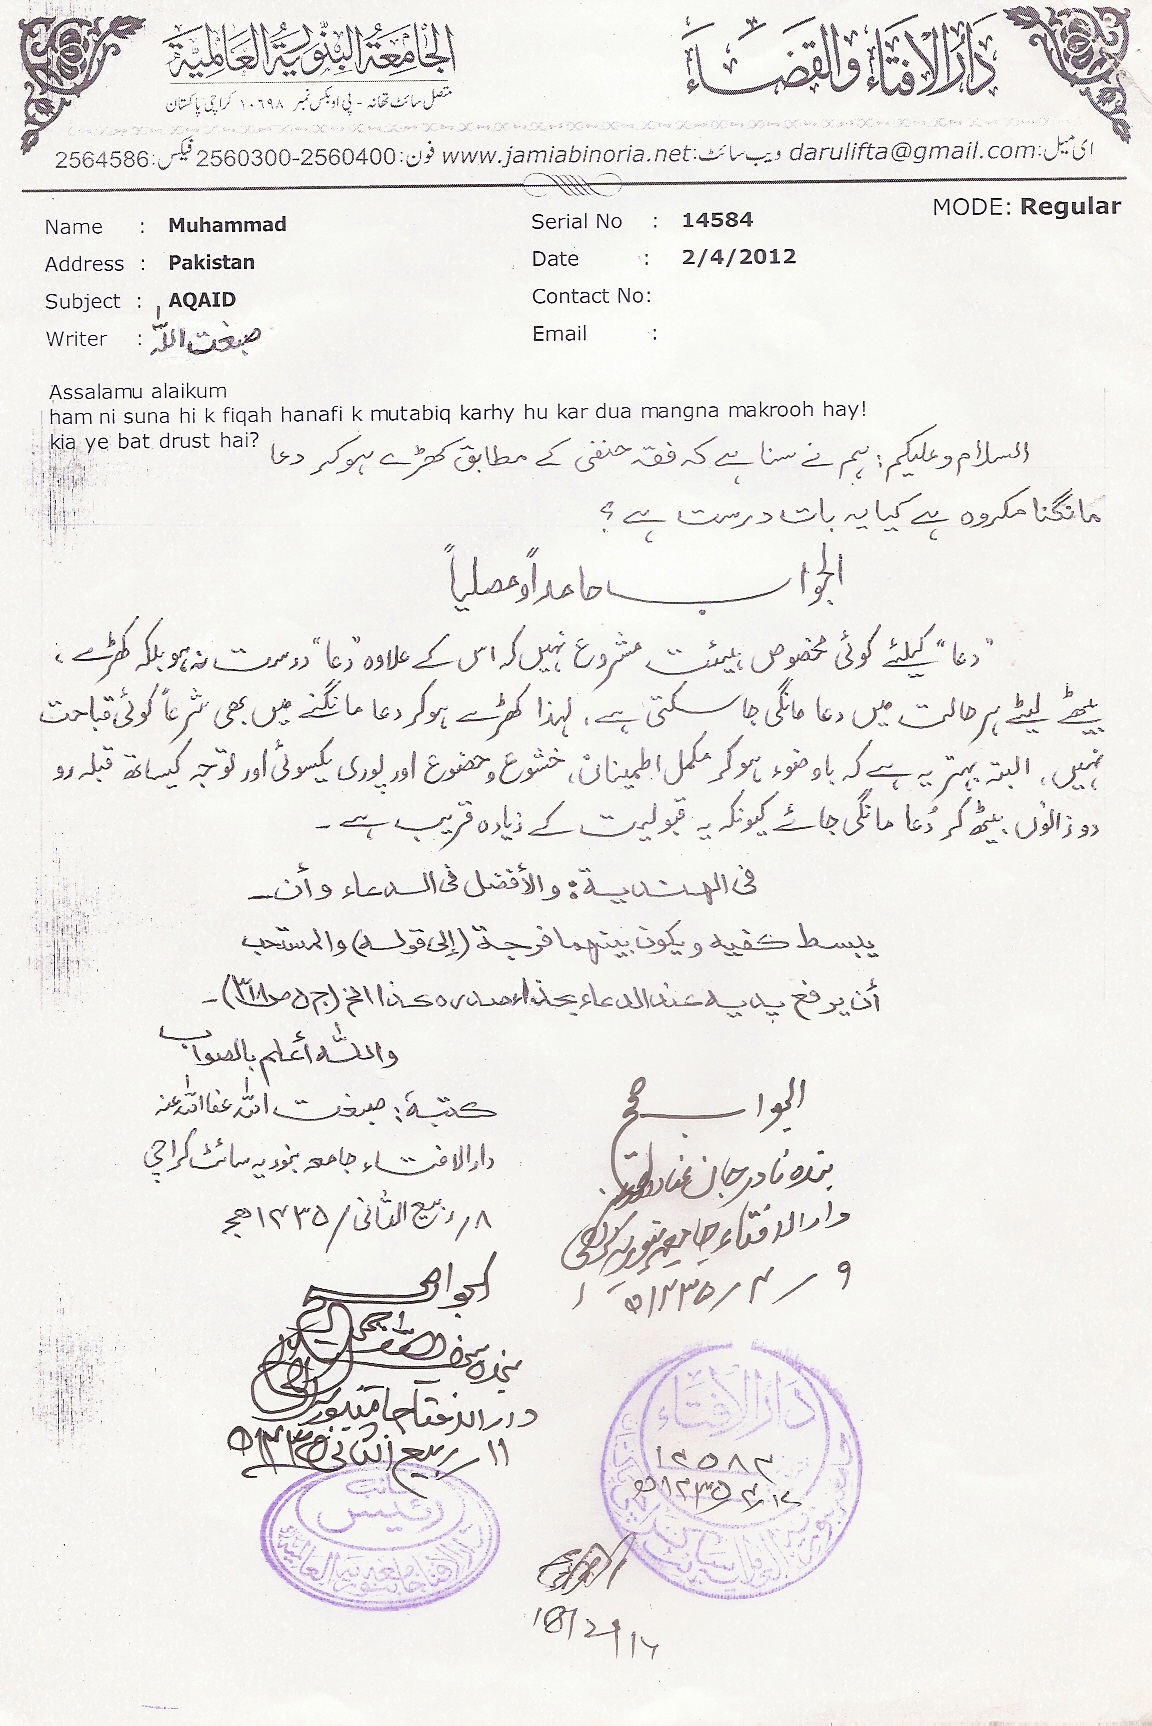 دَارُ الاِفتَاء وَالقَضَاء
الجَامِعَةُ البِنّورِيَةُ العَالَمِيَّة
متصل سائٹ تھانہ - پی او بکس نمبر ۱۰۶۹۸ کراچی پاکستان
ای میل:darulifta@gmail.com ویب سائٹ:www.jamiabinoria.net فون:2560300-2560400 فیکس:2564586
MODE: Regular
Name : Muhammad Serial No : 14584
Address : Pakistan Date : 2/4/2012
Subject : AQAID Contact No:
Writer : صبغت اللہ Email :
Assalamu alaikum
ham ni suna hi k fiqah hanafi k mutabiq karhy hu kar dua mangna makrooh hay!
kia ye bat drust hai?
السلام وعلیکم: ہم نے سنا ہے کہ فقہ حنفی کے مطابق کھڑے ہوکر دعا
مانگنا مکروہ ہے کیا یہ بات درست ہے؟
الجواب حامداً و مصلیاً
"دعا" کیلئے کوئی مخصوص ہیئت مشروع نہیں کہ اس کے علاوہ "دعا" درست نہ ہو بلکہ کھڑے،
بیٹھے لیٹے ہر حالت میں دعا مانگی جا سکتی ہے، لہذا کھڑے ہوکر دعا مانگنے میں بھی شرعاً کوئی قباحت
نہیں، البتہ بہتر یہ ہے کہ باوضوء ہوکر مکمل اطمینان، خشوع و خضوع اور پوری یکسوئی اور توجہ کیساتھ قبلہ رو
دو زانوں بیٹھ کر دُعا مانگی جائے کیونکہ یہ قبولیت کے زیادہ قریب ہے۔
فی الهندیة: والأفضل فی الدعاء وأن
یبسط کفیه ویکون بینهما فرجة (إلی قوله) والمستحب
أن یرفع یدیه عند الدعاء بحذاء صدره کذا الخ (ج۵ ص۳۱۸)۔
واللہ أعلم بالصواب
کتبہٗ: صبغت اللہ عفا اللہ عنہ
دارالافتاء جامعہ بنوریہ سائٹ کراچی
۸/ربیع الثانی/۱۴۳۵ھج
الجواب صحیح
بندہ نادر جان عفا اللہ عنہ
دارالافتاء جامعہ بنوریہ کراچی
۹/۴/۱۴۳۵ھ
الجواب صحیح
بندہ
دارالافتاء جامعہ بنوریہ
۱۱/ربیع الثانی ۱۴۳۵ھ
دَارُ الاِفتَاء
۱۴۵۸۴
نائب
رئیس
دارالافتاء جامعہ بنوریہ العالمیہ